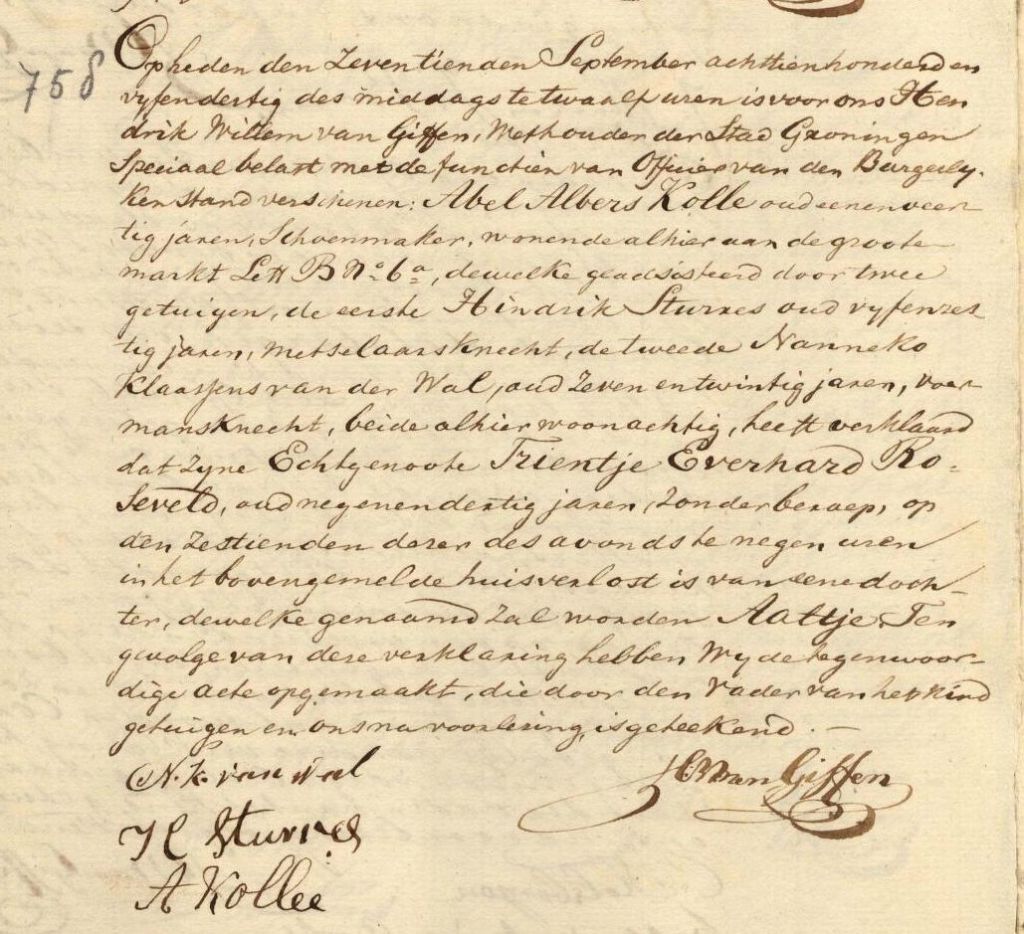 758
Op heden den Zeventienden September achttienhonderd en
vyfendertig des middags te twaalf uren is voor ons Hen
drik Willem van Giffen, Wethouder der Stad Groningen
Speciaal belast met de functien van Officier van den Burgerly-
ken Stand verschenen: Abel Albers Kolle oud eenenveer-
tig jaren, Schoenmaker, wonende alhier aan de groote
markt Lett B No. 6a, dewelke geadsisteerd door twee
getuigen, de eerste Hindrik Sturres oud vyfenzes
tig jaren, Metselaarsknecht, de tweede Nanneko
Klaassens van der Wal, oud Zeven en twintig jaren, voer-
mansknecht, beide alhier woonachtig, heeft verklaard
dat zyne Echtgenoote Trientje Everhard Ro-
seveld, oud negenendertig jaren, zonder beroep, op
den Zestienden dezer des avonds te negen uren
in het bovengemelde huis verlost is van eene doch-
ter, dewelke genaamd zal worden Aaltje. Ten
gevolge van deze verklaring hebben Wy de tegenwoor-
dige Acte opgemaakt, die door den Vader van het kind
getuigen en ons na voorlezing, is geteekend. —
N. K. van wal
HW van Giffen
H Sturres
A Kollee